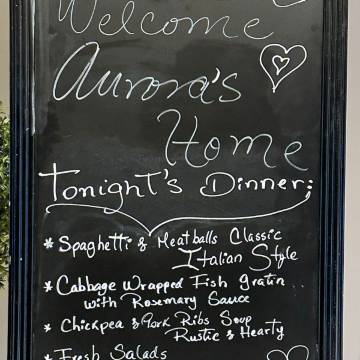 Welcome
Aurora's
Home
Tonight's Dinner:
* Spaghetti & Meatballs Classic
Italian Style
* Cabbage Wrapped Fish Gratin..
with Rosemary Sauce
* Chickpea & Pork Ribs Soup
Rustic & Hearty
* Fresh Salads